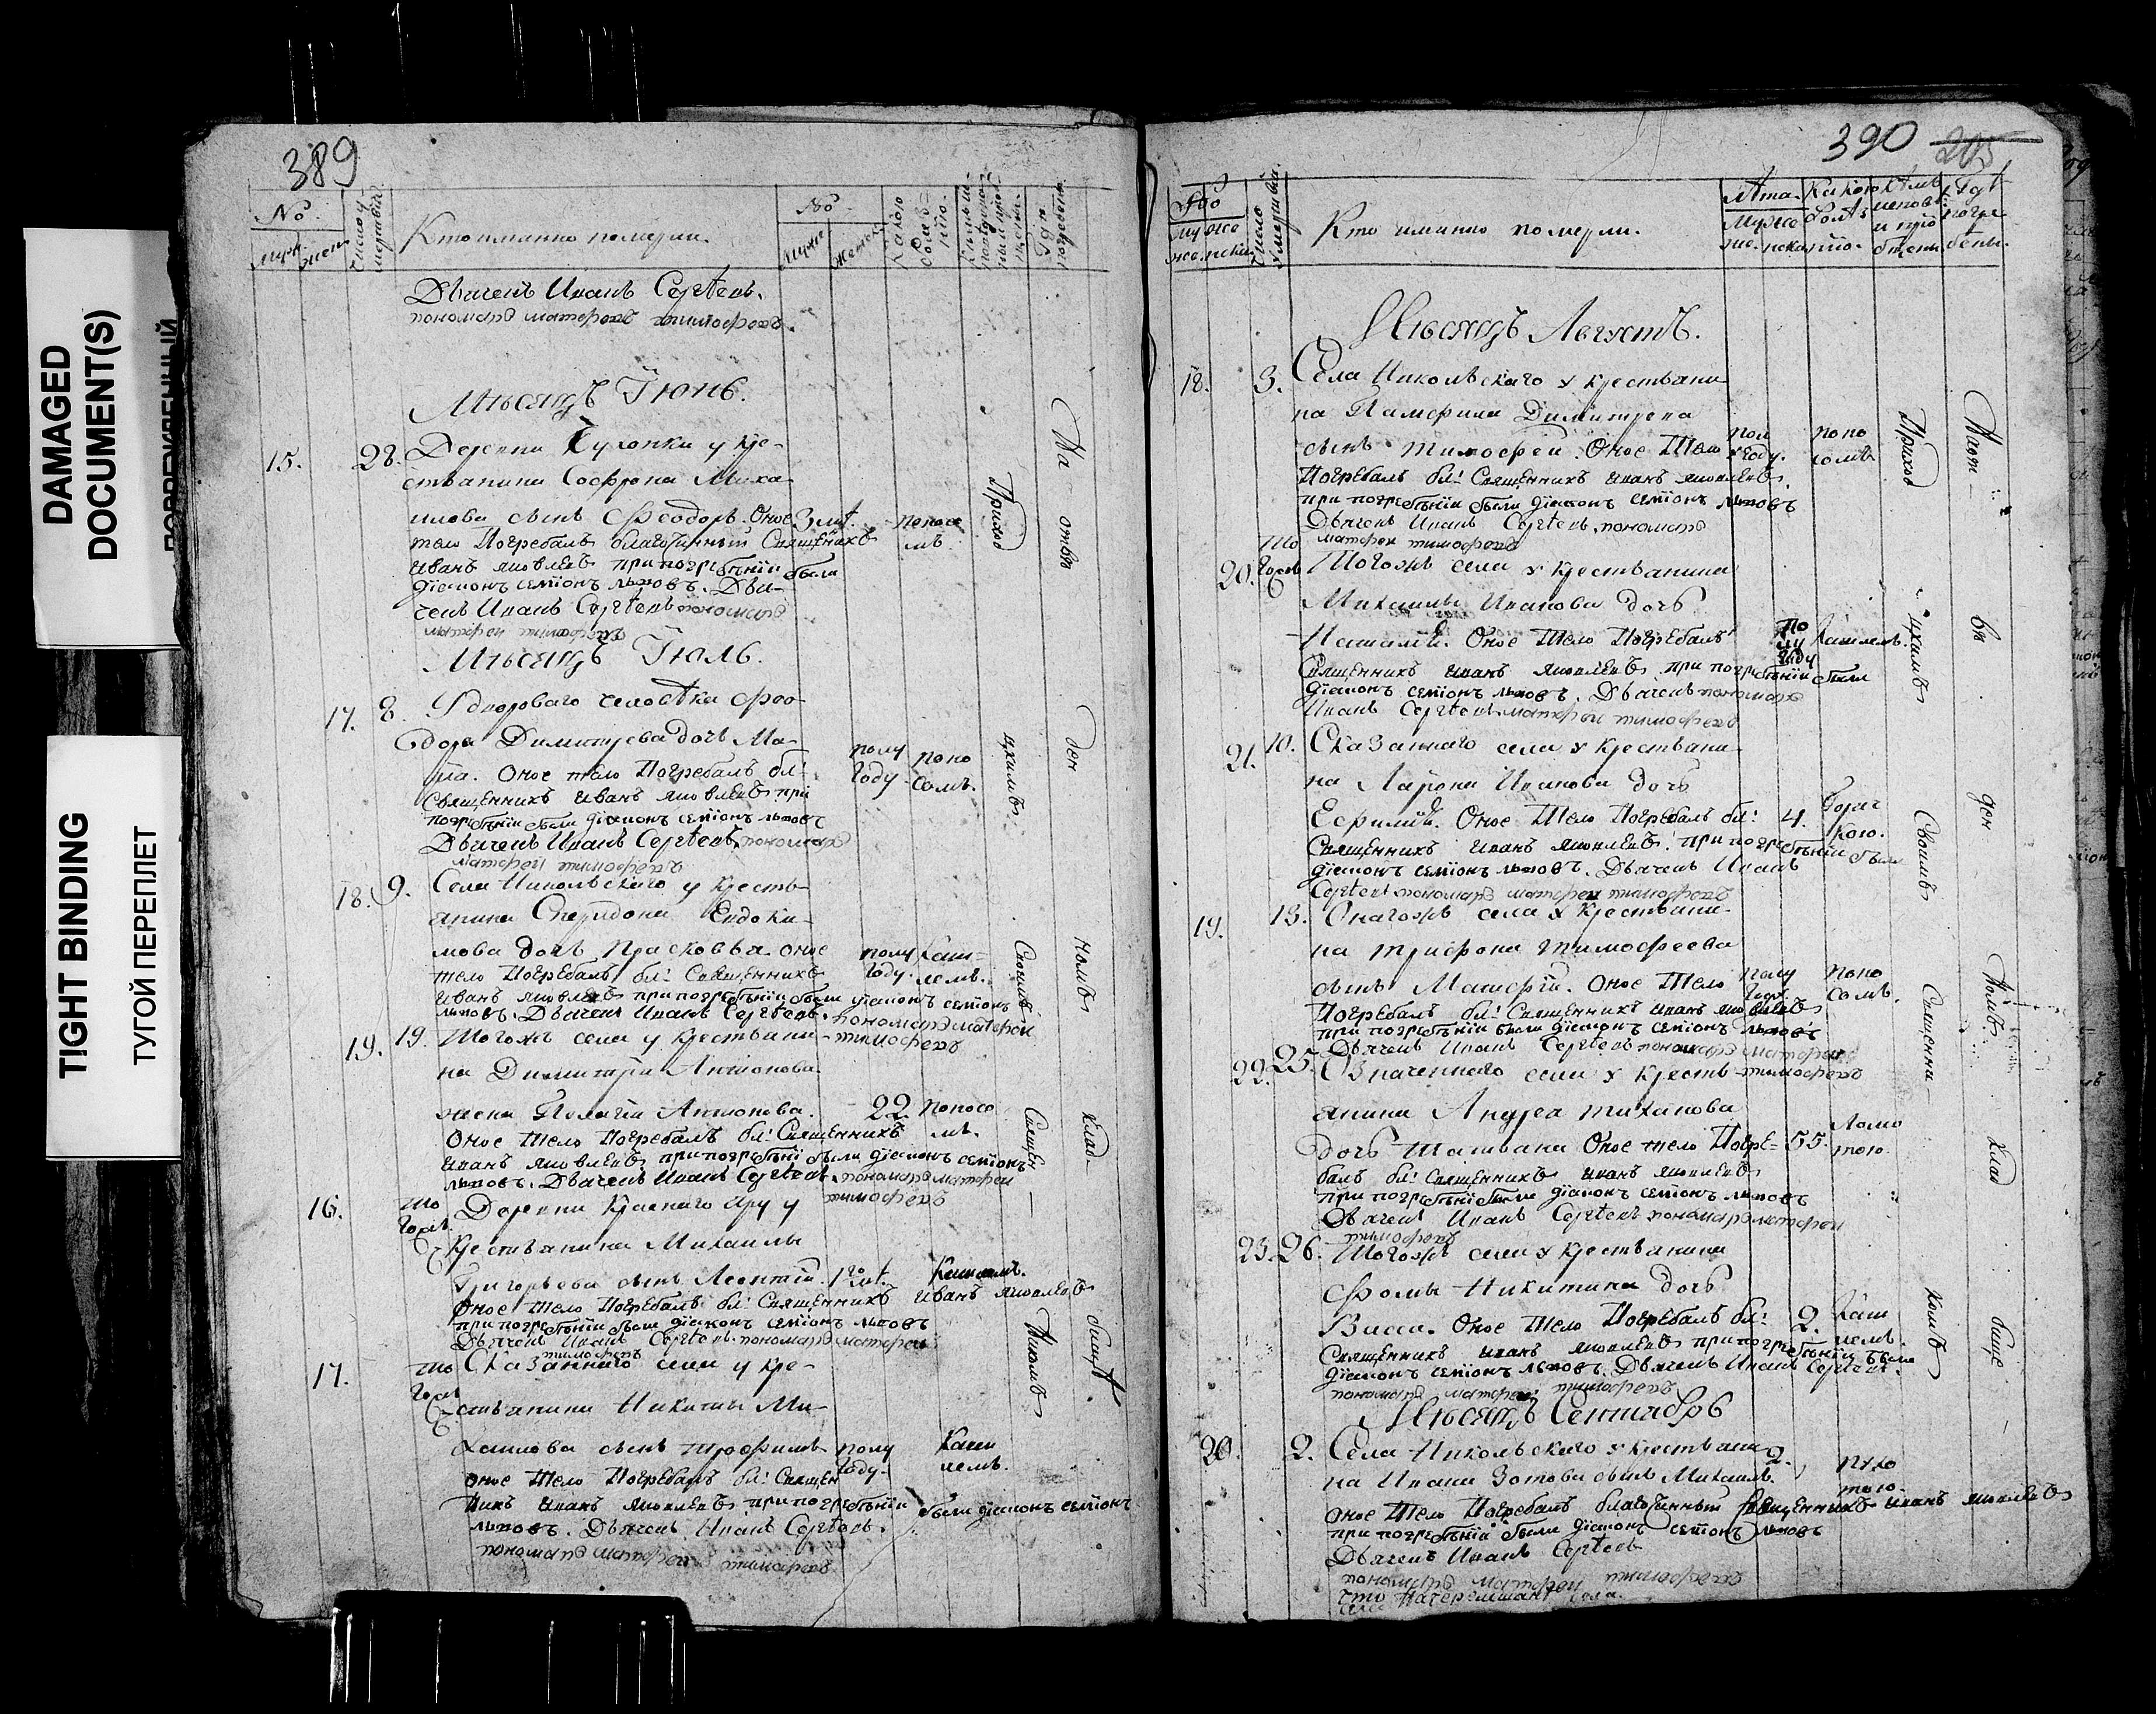 DAMAGED
DOCUMENT(S)
TIGHT BINDING
ТУГОЙ ПЕРЕПЛЕТ
389
№
Кто имянно померли.
№
Дьячекъ Иванъ Сергѣевъ.
пономарь матфей тимофеевъ
Мѣсяцъ Іюнь.
15. 28. Деревни Сухопки у кре-
стьянина Софрона Миха-
илова сынъ Феодоръ. Оное 3 лѣт. поносо
тело Погребалъ благочинный Священникъ мъ.
Иванъ яковлевъ при погребѣнїи были
дїаконъ семїонъ львовъ. Дья-
чекъ Иванъ Сергѣевъ пономарь
матфей тимофеевъ
Мѣсяцъ Іюль.
17. 8. У двороваго человѣка Фео-
дора Димитрева дочь Ма- полу поно
ѳа. Оное тело Погребалъ бл: году. сомъ.
Священникъ Иванъ яковлевъ при
погребѣнїи были дїаконъ семїонъ львовъ
Дьячекъ Иванъ Сергѣевъ, пономарь
матфей тимофеевъ
18. 9. Села Никольскаго у кресть-
янина Спиридона Евдоки-
мова дочь Прасковья. оное полу каш-
тело Погребалъ бл: Священникъ году. лемъ.
Иванъ яковлевъ при погребѣнїи были дїаконъ семїонъ
львовъ. Дьячекъ Иванъ Сергѣевъ. пономарь матфей
19. 19. Тогожъ села у крестьяни- тимофеевъ
на Димитрия Антонова
жена Пелагїя Антонова. 22 поносо
Оное тело Погребалъ бл: Священникъ мъ.
Иванъ яковлевъ при погребѣнї были дїаконъ семїонъ
львовъ. Дьячекъ Иванъ Сергѣевъ. пономарь матфей
тимофеевъ
16. то Деревни Краснаго яру у
гожъ
крестьянина Михаилы
Григорьева сынъ Леонтїй. 1го лѣт. Кашлемъ.
Оное тело Погребалъ бл: Священникъ Иванъ яковлевъ
при погребѣнїи были дїаконъ семїонъ львовъ
Дьячекъ Иванъ Сергѣевъ. пономарь матфей
тимофеевъ
17. то Сказаннаго села у кре-
гожъ
стьянина Никиты Ми-
хаилова сынъ трофимъ полу Каш
оное тело Погребалъ бл: Священ году. лемъ.
никъ Иванъ яковлевъ при погребѣнїи были дїаконъ семїонъ
львовъ. Дьячекъ Иванъ Сергѣевъ.
пономарь матфей тимофеевъ
Приход
цкимъ
Своимъ
Священ
Никомъ
На отве
ден
номъ
клад
бищѣ
390 205
Кто имянно померли.
Мѣсяцъ Августъ.
18. 3. Села Никольскаго у крестьяни-
на Памфила Димитрева
сынъ Тимофей. Оное Тело пол поно
Погребалъ бл: Священникъ Иванъ яковлевъ. году. сомъ
при погребѣнїи были дїаконъ семїонъ львовъ
Дьячекъ Иванъ Сергѣевъ. пономарь
матфей тимофеевъ
20. то гожъ Тогожъ села у крестьянина
Михаилы Иванова дочь
Наталїя. Оное Тело Погребалъ полу году Кашлемъ.
Священникъ Иванъ яковлевъ. при погребѣнїи были
дїаконъ семїонъ львовъ. Дьячекъ пономарь
Иванъ Сергѣевъ матфей тимофеевъ
21. 10. Сказаннаго села у крестьяни-
на Лариона Иванова дочь
Ефимїя. Оное Тело Погребалъ бл: 4. Горяч
Священникъ Иванъ яковлевъ. при погребѣнїи были кою.
дїаконъ семїонъ львовъ. Дьячекъ Иванъ
Сергѣевъ пономарь матфей тимофеевъ
19. 13. Онагожъ села у крестьяни-
на трифона тимофеева
сынъ Матфїй. Оное Тело полу поно
Погребалъ бл: Священникъ Иванъ яковлевъ году. сомъ.
при погребѣнїи были дїаконъ семїонъ львовъ
Дьячекъ Иванъ Сергѣевъ пономарь матфей
22. 25. Означеннаго села у кресть- тимофеевъ
янина Андрея тиханова
дочь Татьяна Оное тело Погре- 55. Ломо
балъ бл: Священникъ Иванъ яковлевъ тою.
при погребѣнїи были дїаконъ семїонъ львовъ
Дьячекъ Иванъ Сергѣевъ пономарь матфей
тимофеевъ
23. 26. Тогожъ села у крестьянина
Фомы Никитина дочь
Васса. Оное Тело Погребалъ бл: 2. Каш
Священникъ Иванъ яковлевъ при погребѣнїи были лемъ.
дїаконъ семїонъ львовъ. Дьячекъ Иванъ Сергѣевъ.
пономарь матфей тимофеевъ
Мѣсяцъ Сентябрь
20. 2. Села Никольскаго у крестьяни 2.
на Ивана Зотова сынъ Михаилъ.
оное Тело Погребалъ благочинный Священникъ Иванъ яковлевъ
при погребѣнїи были дїаконъ семїонъ львовъ
Дьячекъ Иванъ Сергѣевъ
пономарь матфей тимофеевъ
Приход
цкимъ
Своимъ
Священни
комъ
ве
ден
номъ
клад
бище